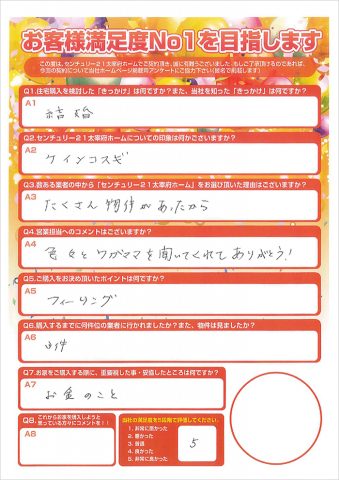 お客様満足度No1を目指します
この度は、センチュリー21太宰府ホームでご契約頂き、誠に有難うございました。もしご了承頂けるのであれば、
今回の契約について当社ホームページ掲載用アンケートにご協力下さい(匿名で掲載します)
Q1.住宅購入を検討した「きっかけ」は何ですか?また、当社を知った「きっかけ」は何ですか?
A1
結婚
Q2.センチュリー21太宰府ホームについての印象は何かございますか?
A2
ケインコスギ
Q3.数ある業者の中から「センチュリー21太宰府ホーム」をお選び頂いた理由はございますか?
A3
たくさん物件があったから
Q4.営業担当へのコメントはございますか?
A4
色々とワガママを聞いてくれてありがとう!
Q5.ご購入をお決め頂いたポイントは何ですか?
A5
フィーリング
Q6.購入するまでに何件位の業者に行かれましたか?また、物件は見ましたか?
A6
件
Q7.お家をご購入する際に、重要視した事・妥協したところは何ですか?
A7
お金のこと
Q8.
これからお家を購入しようと
思っている方々にコメントを!!
A8
当社の満足度を5段階で評価してください。
1. 非常に悪かった
2. 悪かった
3. 普通
4. 良かった
5. 非常に良かった
5